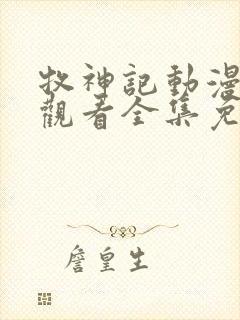 牧神記動漫
觀看全集免
詹皇生